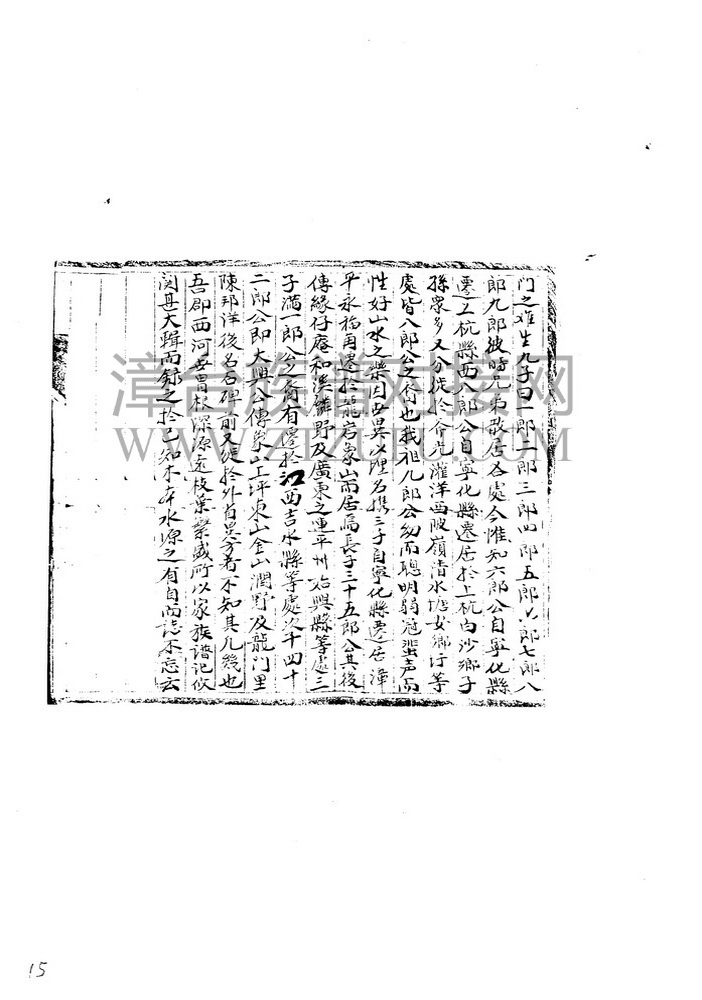 門之难生九子曰一郎二郎三郎四郎五郎六郎七郎八
郎九郎彼時兄弟散居各處今惟知六郎公自寧化縣
遷上杭縣西八郎公自寧化縣遷居於上杭白沙鄉子
孫衆多又分徙於 灌洋西陂嶺清水塘女鄉圩等
處皆八郎公之裔也我祖九郎公幼而聰明弱冠蜚声而
性好山水之樂因 以理名携三子自寧化縣遷居漳
平永福再遷於龍岩象山而居焉長子三十五郎公其後
傳緣仔庵和溪 野及廣東之連平州始興縣等處三
子满一郎公之裔有遷於江西吉水縣等處次子四十
二郎公即大興公傳象山上坪東山金山澗野及龍门里
陳邦洋後名石碑前又徙於外省異方者不知其凡幾也
吾郡西河世冑根深源远枝葉繁盛所以家族谱记攸
関甚大輯而録之於己知木本水源之有自而誌不忘云
漳台族譜对接网
15